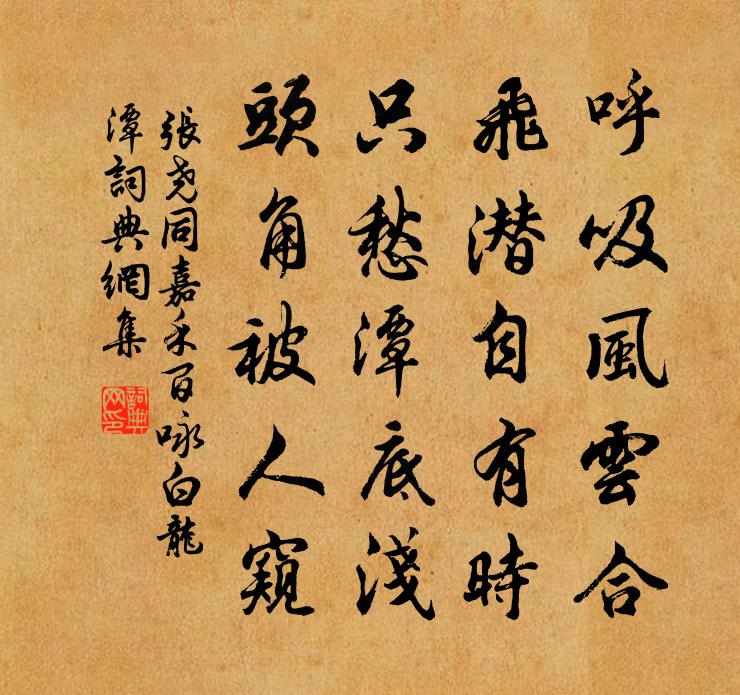 呼吸風雲合
飛潜自有時
只愁潭底淺
頭角被人窺
張尧同嘉禾百咏白龍
潭詞典網集
詞典
网印